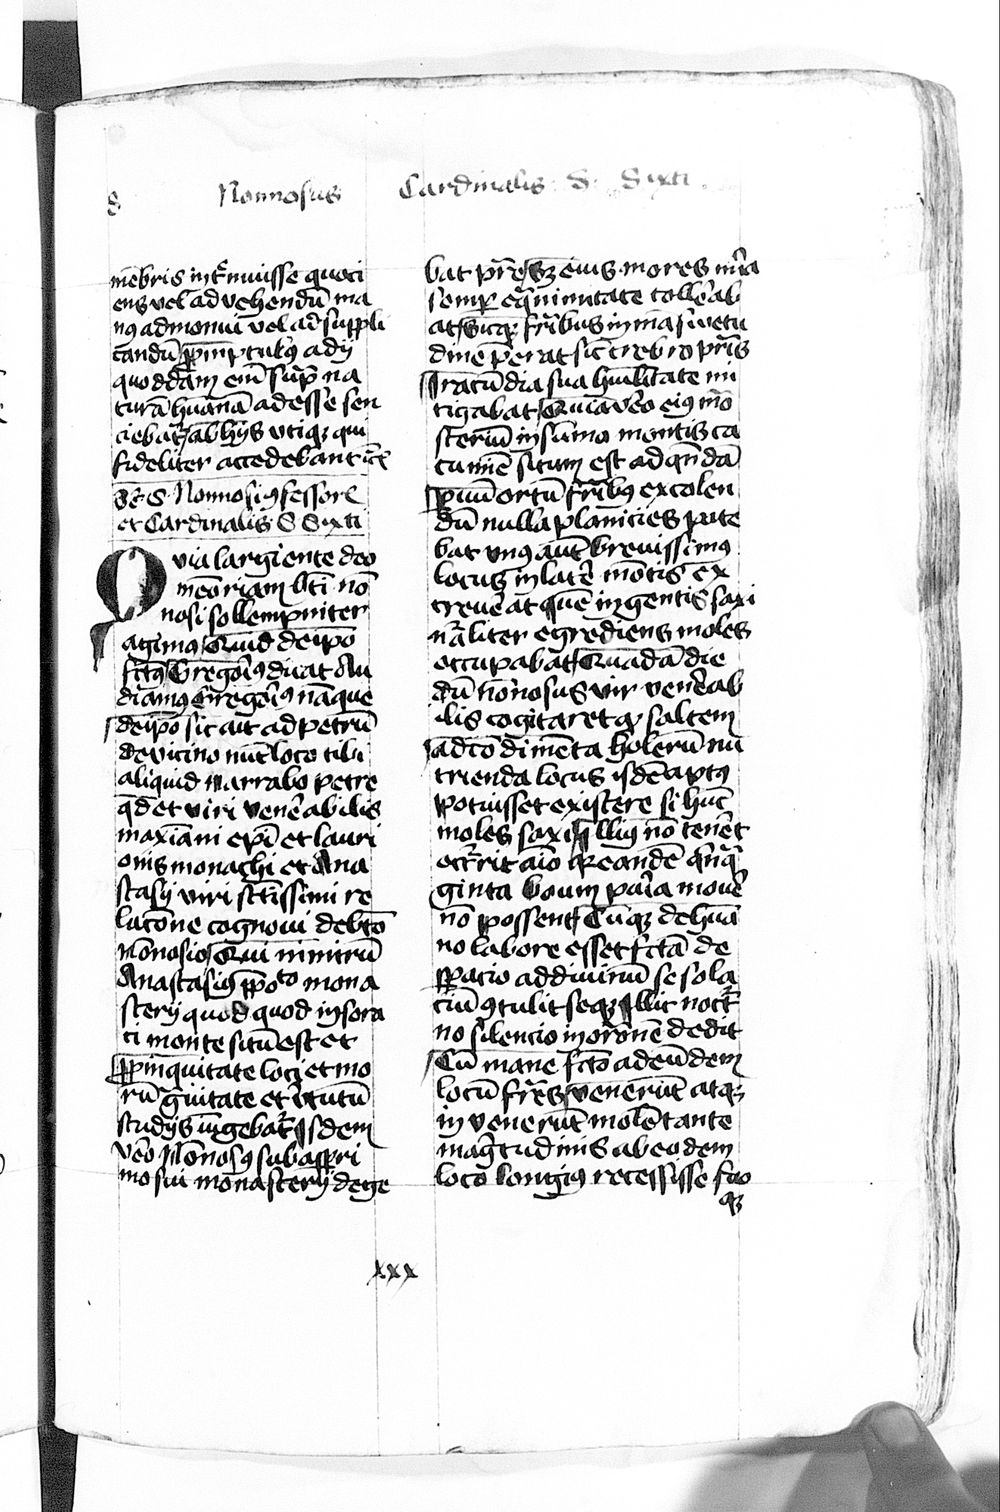 S Nonnosus Cardinalis S. Sixti
mēbris int͛muisse quoci
ens vel ad vehendū ma
nꝰ admonui vel ad suppli
candū promptulꝰ adij
quoddam em̄ sup̄ na
turā hūanā adesse sen
ciebat᷑ ab hijs vtiqꝫ qui
fideliter accedebant
De S. Nonnosi ꝯfessore
et Cardinalis S Sixti
Quia largiente deo
memoriam bt̄i non
nosi sollempniter
agimus Quid de ip̄o
sc̄tꝰ Gregoriꝰ dicat Au
diamꝰ Gregoriꝰ nāque
de ip̄o sic ait ad petrū
de vicino nūc loco tibi
aliquid narrabo petre
qd̄ et viri venerabilis
maximiani ep̄i et lauri
onis monachi et Ana
stasij viri sc̄tissimi re
lacōne cognoui de bt̄o
nōnosio Qui nimirū
Anastasiꝰ p̄po͏̄to mona
sterij quod quod in sora
cti monte sitū est et
ꝓpinquitate loci et mo
rū grauitate et v̄tutū
studijs iūgebat᷑ Isdem
vero Nōnosꝰ sub asperi
mo sui monasterij dege
bat pr̄e Sꝫ eius mores mira
semꝑ equinimitate tollerab
at Sicqꝫ fr̄ibus in mā suetu
dine p̄erat sic crebro pr̄is
Iracūdia sua hūilitate mi
tigabat Quia vero eiꝰ mō
sterium in sūmo montis ca
cumine situm est ad quāndā
ꝑuū ortū fr̄ibꝰ excolen
dū nulla planicies pate
bat vnꝰ aūt breuissimꝰ
locus in latere mōtis ex
creuerat quē ingentis saxi
nr̄aliter egrediens moles
occupabat Quadā die
dū nōnosus vir venerab
ilis cogitaret qꝫ saltem
ad cōdimenta holerū nu
trienda locus isdē aptꝰ
potuisset existere si hūc
moles saxi illiꝰ nō teneret
occ̄rit aīo qꝫ eandē quīqua
ginta boum paria mouere
nō possent Cūqꝫ de hūa
no labore esset fc̄tā de
sꝑacio ad diuinū se sola
ciū ꝯtulit seqꝫ Illic noct͛
no silencio in or̄one dedit
Cū mane fc̄o ad eūdem
locū fr̄es venerūt atqꝫ
inuenerūt molē tante
magnitudinis ab eodem
loco longius recessisse suo
qꝫ
xxx